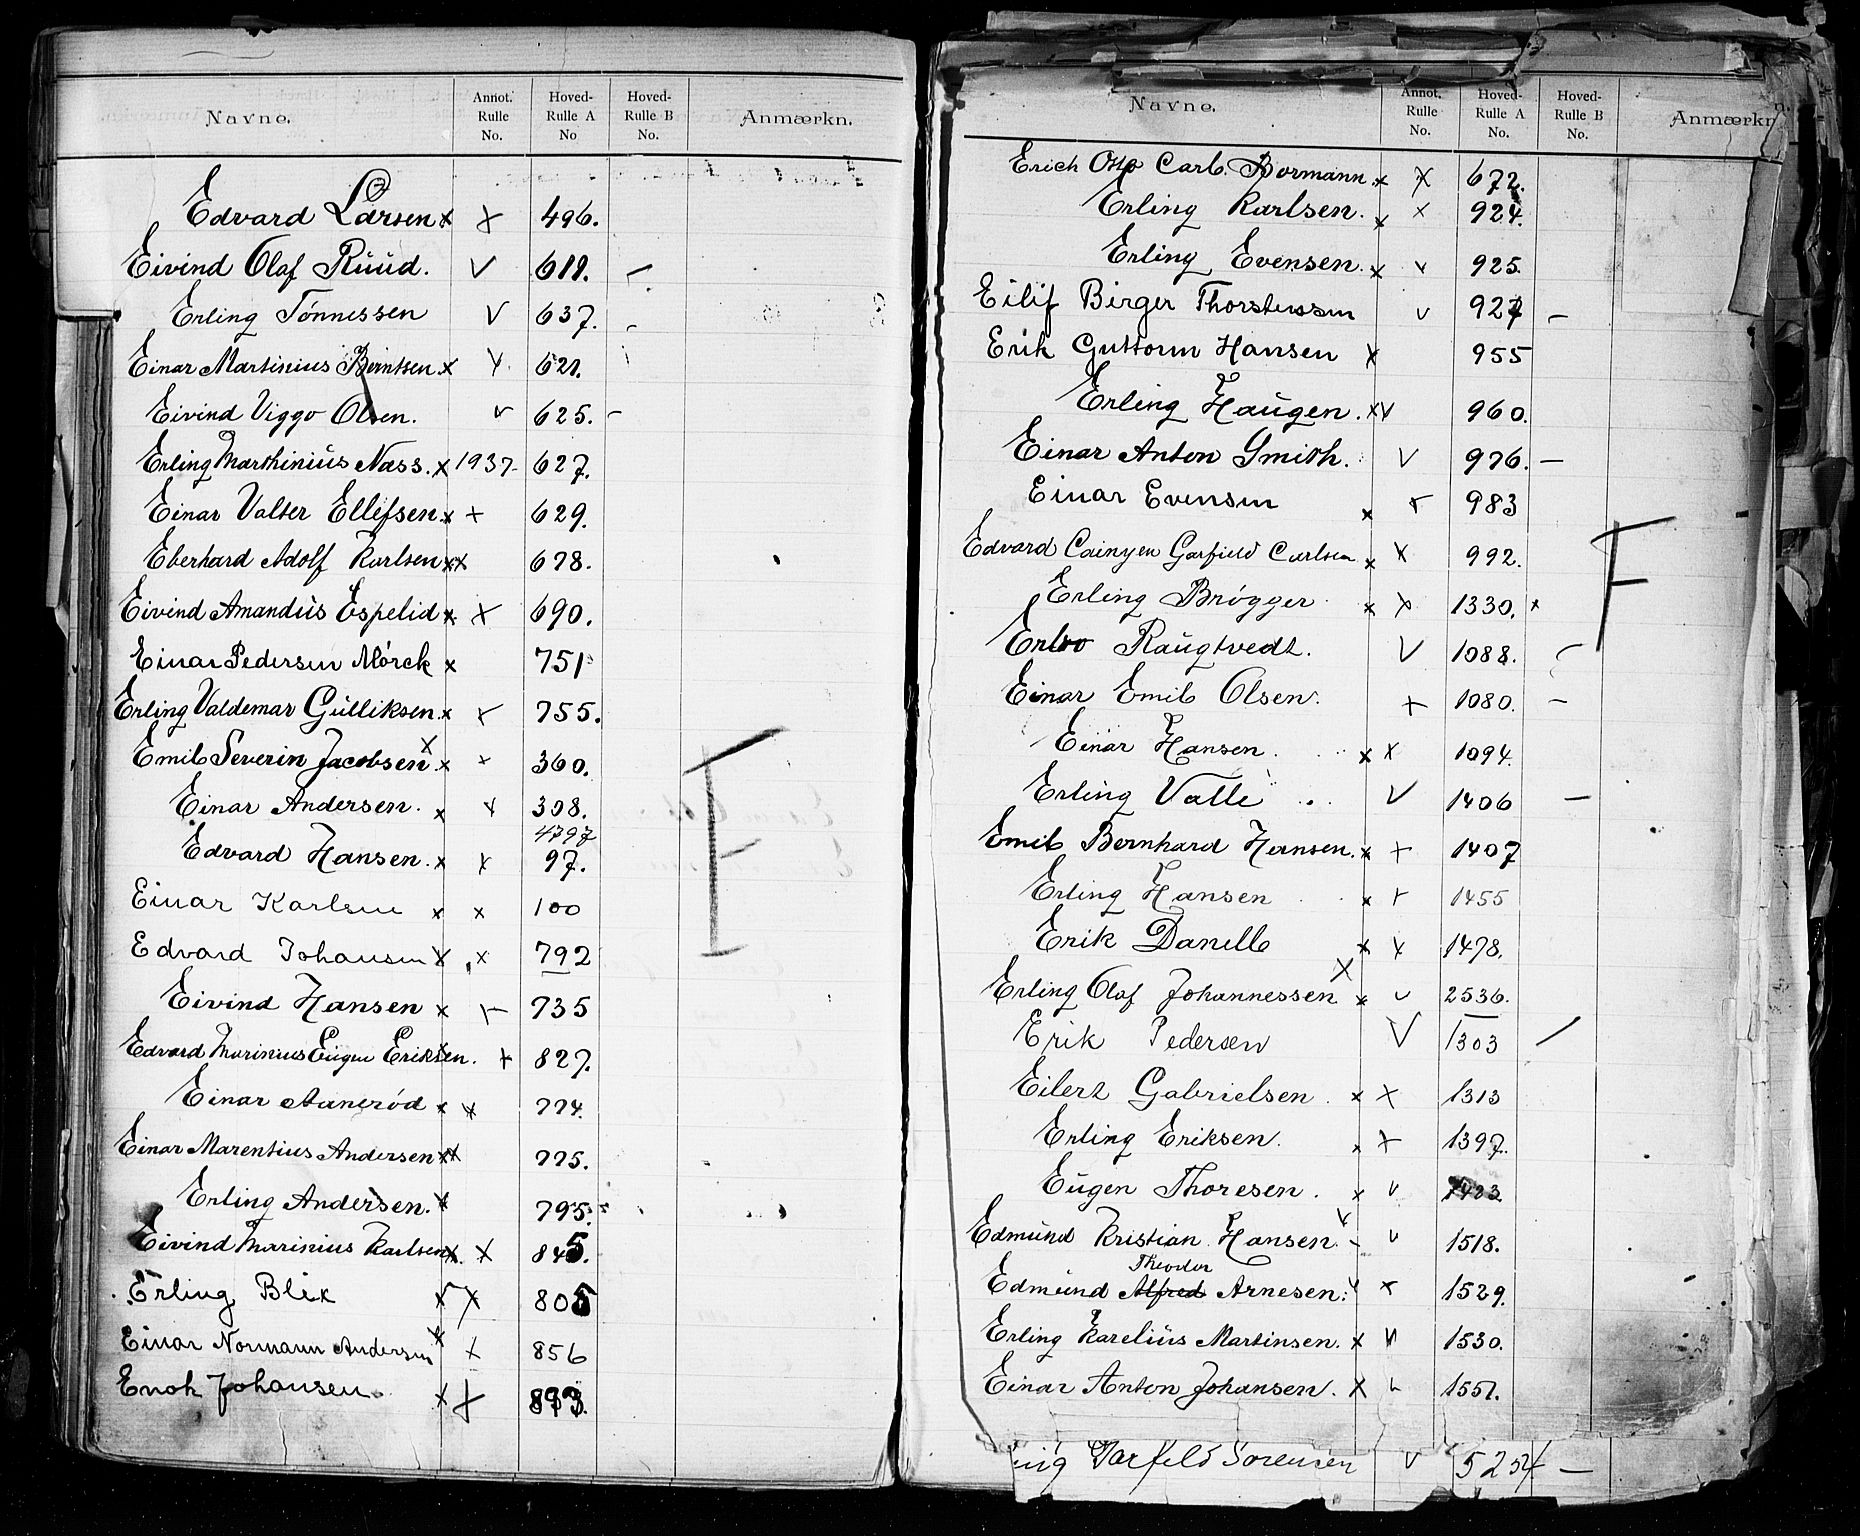 Navne. Annot. Rulle No. Hoved-Rulle A No Hoved-Rulle B No. Anmærkn.
Edvard Larsen x x 496.
Eivind Olaf Ruud. V 611. -
Erling Tönnessen V 637. -
Einar Martinius Berntsen x V. 621.
Eivind Viggo Olsen. v 625. -
Erling Marthinius Næss. x 1937 627.
Einar Valter Ellefsen x + 629.
Eberhard Adolf Karlsen xx 678.
Eivind Amandus Espelid x x 690.
Einar Pedersen Mørck x 751
Erling Valdemar Gulliksen x x 755.
Emil Severin Jacobsen x x x 360.
Einar Andersen. x x 308.
4797
Edvard Hansen. x x 97.
Einar Karlsen x x 100
Edvard Johansen x x 792
Eivind Hansen x x 735
Edvard Marinius Eugen Eriksen. x 827.
Einar Aanerød x x 774.
Einar Marentius Andersen xx 775.
Erling Andersen. x 795.
Eivind Marinius Karlsen x x 845.
Erling Blix x x 805
Einar Normann Andersen x x 856
Enok Johansen x x 893.
F
Navne. Annot. Rulle No. Hoved-Rulle A No. Hoved-Rulle B No. Anmærkn
Erich Otto Carl. Bormann x x 672.
Erling Karlsen. x x 924.
Erling Evensen. x v 925.
Eilif Birger Thorstensen v 927 -
Erik Guttorm Hansen x 955
Erling Haugen. x v 960.
Einar Anton Smith. V 976. -
Einar Evensen x x 983
Edvard Garfield Carlsen x x 992.
Erling Brøgger x x 1330. x
Raugtvedt. V 1088. -
Einar Emil Olsen. + 1080. -
Einar Hansen. x x 1094.
Erling Valle V 1406 -
Emil Bernhard Hansen. x + 1407
Erling Hansen x x 1455
Erik Danell x x 1478.
Erling Olaf Johannessen x x v 2536.
Erik Pedersen V 1303 /
Eilert Gabrielsen. x x 1313
Erling Eriksen. x x 1397.
Eugen Thoresen. x v 1423
Edmund Kristian Hansen. x - v 1518.
Theodor
Edmund Alfred Arnesen: v x 1529.
Erling Karelius Martinsen. x v 1530.
Einar Anton Johansen. x v 1551.
Garfeld Sorensen v 5254 -
F